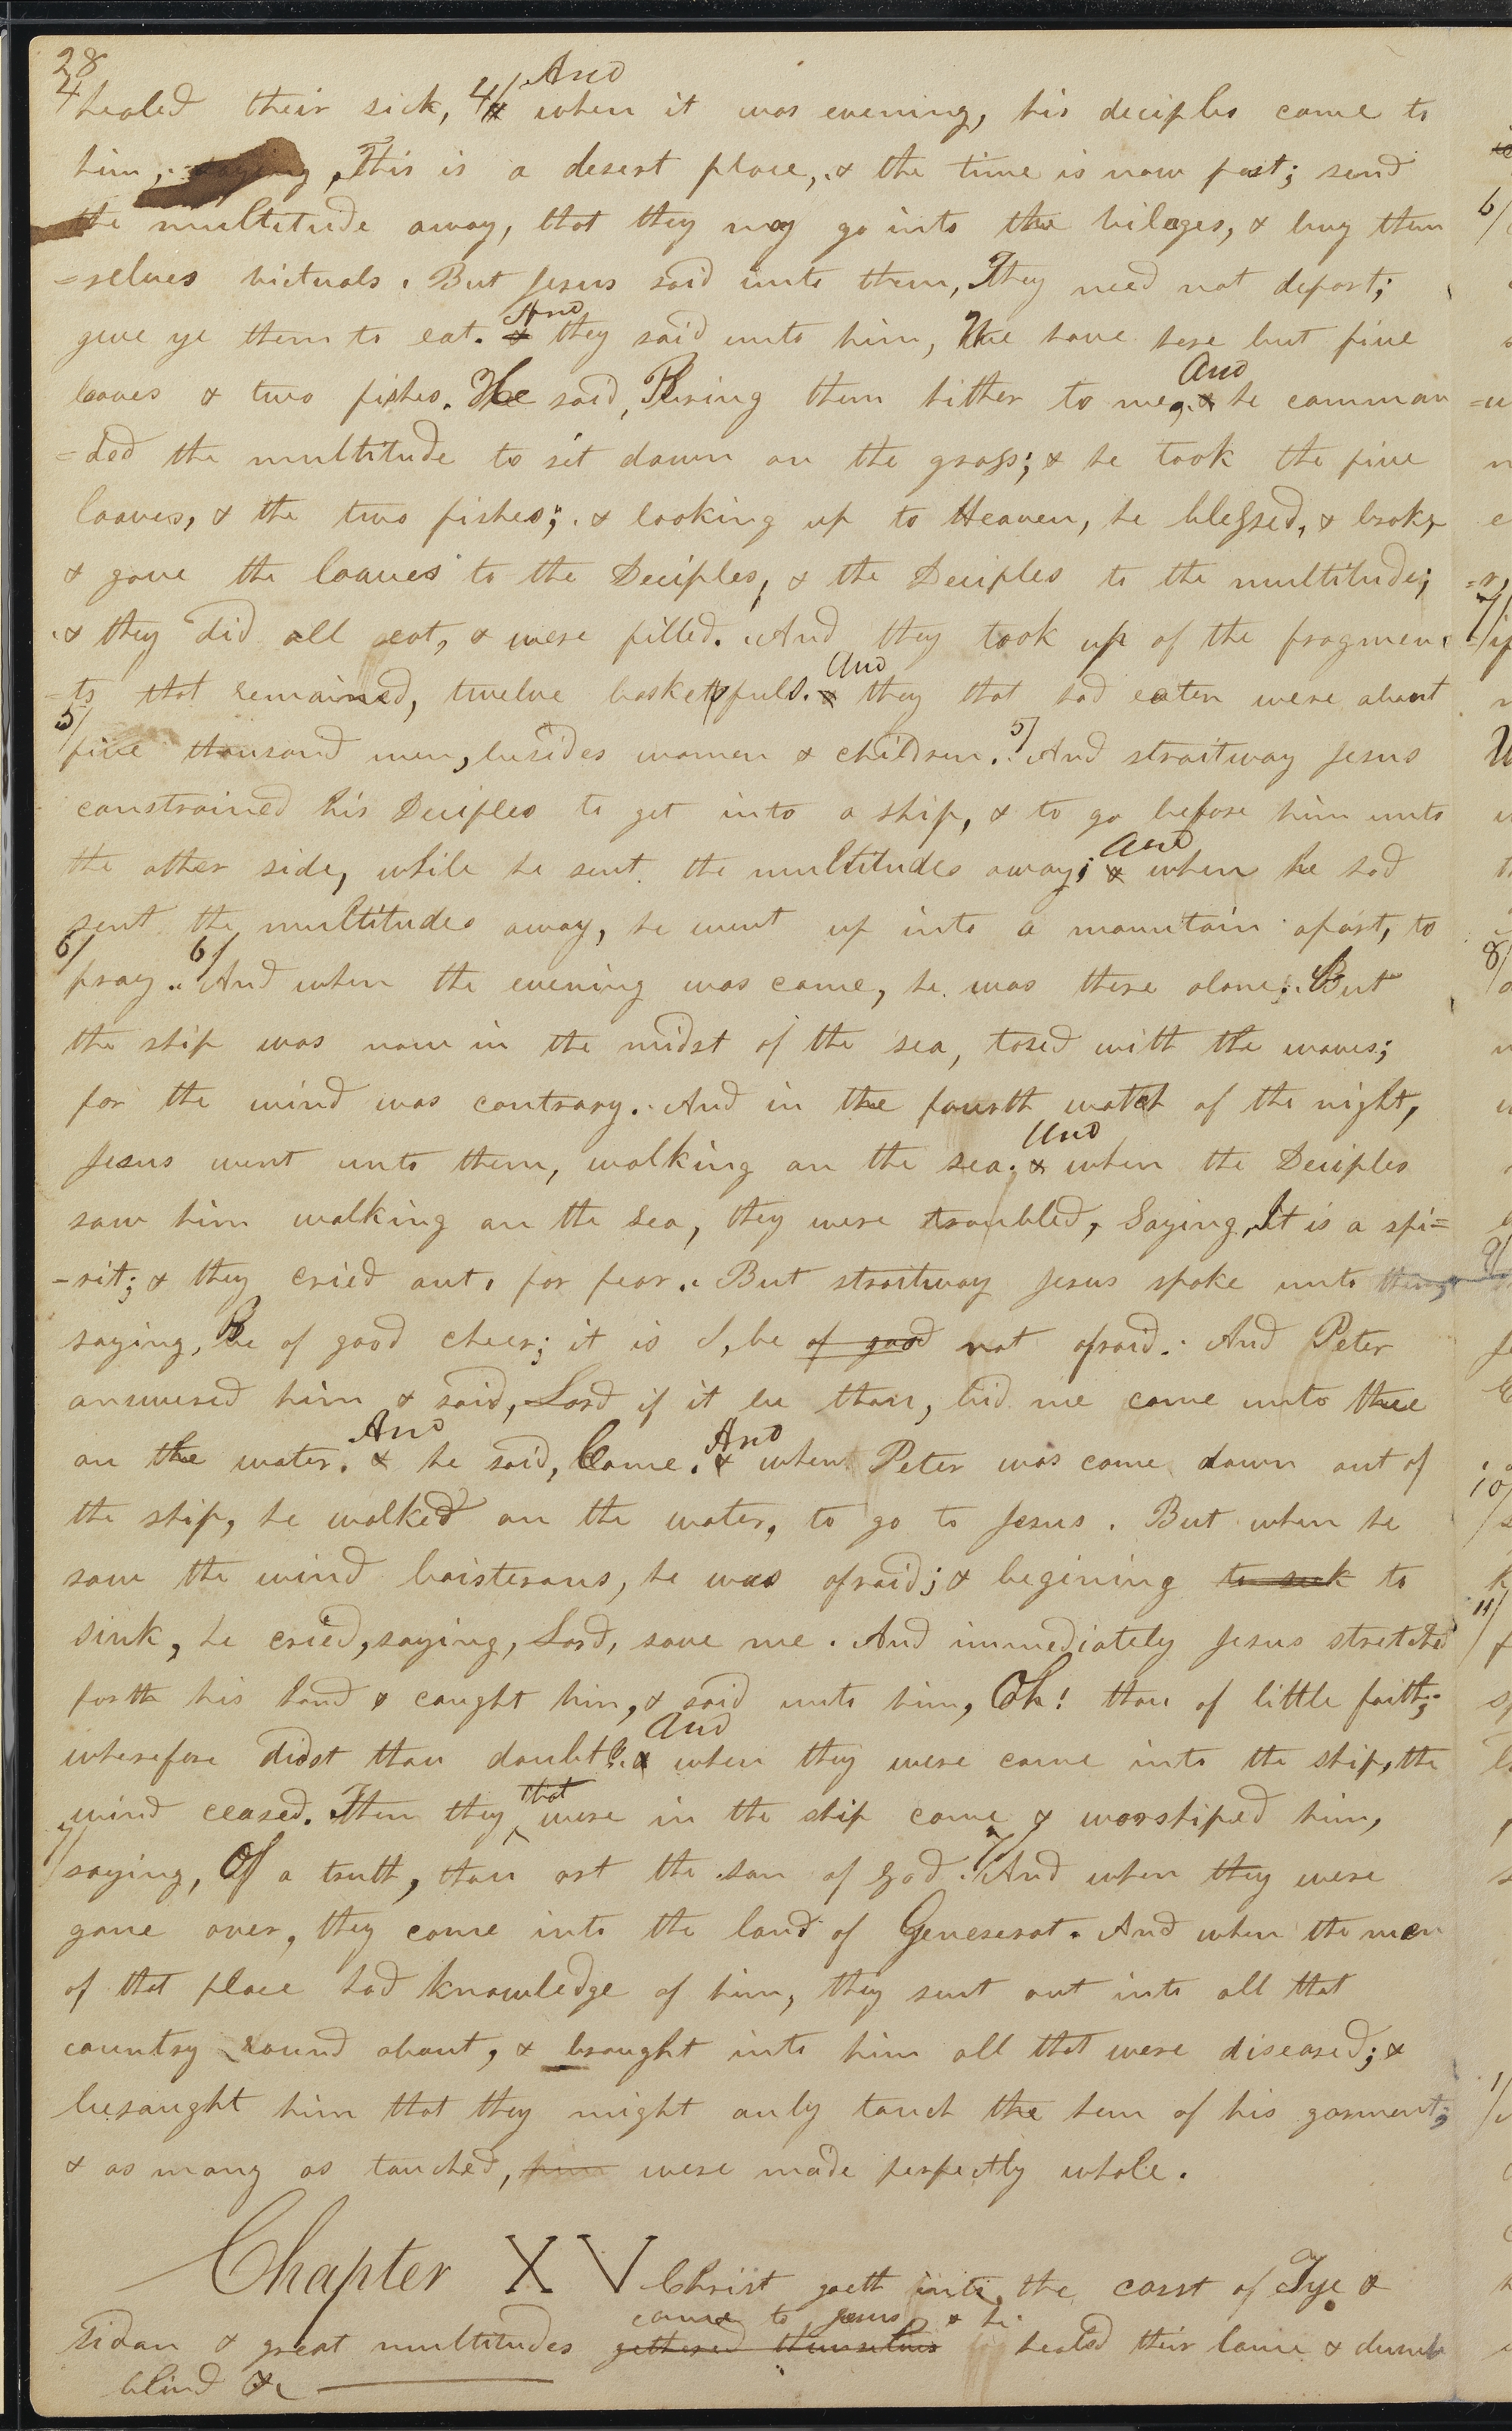 28
4 healed their sick, 4/ & And when it was evening, his deciples came to
him, saying, This is a desert place, & the time is now past; send
the multitude away, that they may go into the vilages, & buy them
=selves victuals. But Jesus said unto them, They need not depart;
give ye them to eat. & And they said unto him, We have here but five
loaves & two fishes. He said, Bring them hither to me, & And he comman
=ded the multitude to sit down on the grass; & he took the five
loaves, & the two fishes; & looking up to Heaven, he blessed, & broke,
& gave the loaves to the Deciples, & the Deciples to the multitude;
& they did all eat, & were filled. And they took up of the fragmen
-ts that remained, twelve basketsfuls. & And they that had eaten were about
5/ five thousand men, besides women & children. 5/ And straitway Jesus
constrained his Deciples to get into a ship, & to go before him unto
the other side, while he sent the multitudes away; & And when he had
sent the multitudes away, he went up into a mountain apart, to
6/ pray. 6/ And when the evening was come, he was there alone; But
the ship was now in the midst of the sea, tosed with the waves;
for the wind was contrary. And in the fourth watch of the night,
Jesus went unto them, walking on the sea. & And when the Deciples
saw him walking on the sea, they were troubled, Saying, It is a spi=
-rit; & they cried out, for fear. But straitway Jesus spake unto them,
saying, Be of good cheer; it is I, be of good not afraid. And Peter
answered him & said, Lord if it be thou, bid me come unto thee
on the water. & And he said, Come. & And when Peter was come down out of
the ship, he walked on the water, to go to Jesus. But when he
saw the wind boisterous, he was afraid; & begining to seek to
sink, he cried, saying, Lord, save me. And immediately Jesus stretched
forth his hand & caught him, & said unto him, Oh! thou of little faith,
wherefore didst thou doubt? & And when they were come into the ship, the
wind ceased. Then they that were in the ship came & worshiped him,
7/ saying, Of a truth, thou art the son of God. 7/ And when they were
gone over, they come into the land of Geneserat. And when the men
of that place had knowledge of him, they sent out into all that
country round about, & brought into him all that were diseased; &
besought him that they might only touch the hem of his garment;
& as many as touched, him were made perfectly whole.
Chapter XV Christ goeth into the coast of Tye &
Sidon & great multitudes gethered themselves came to Jesus & he healed their lame & dumb
blind &c